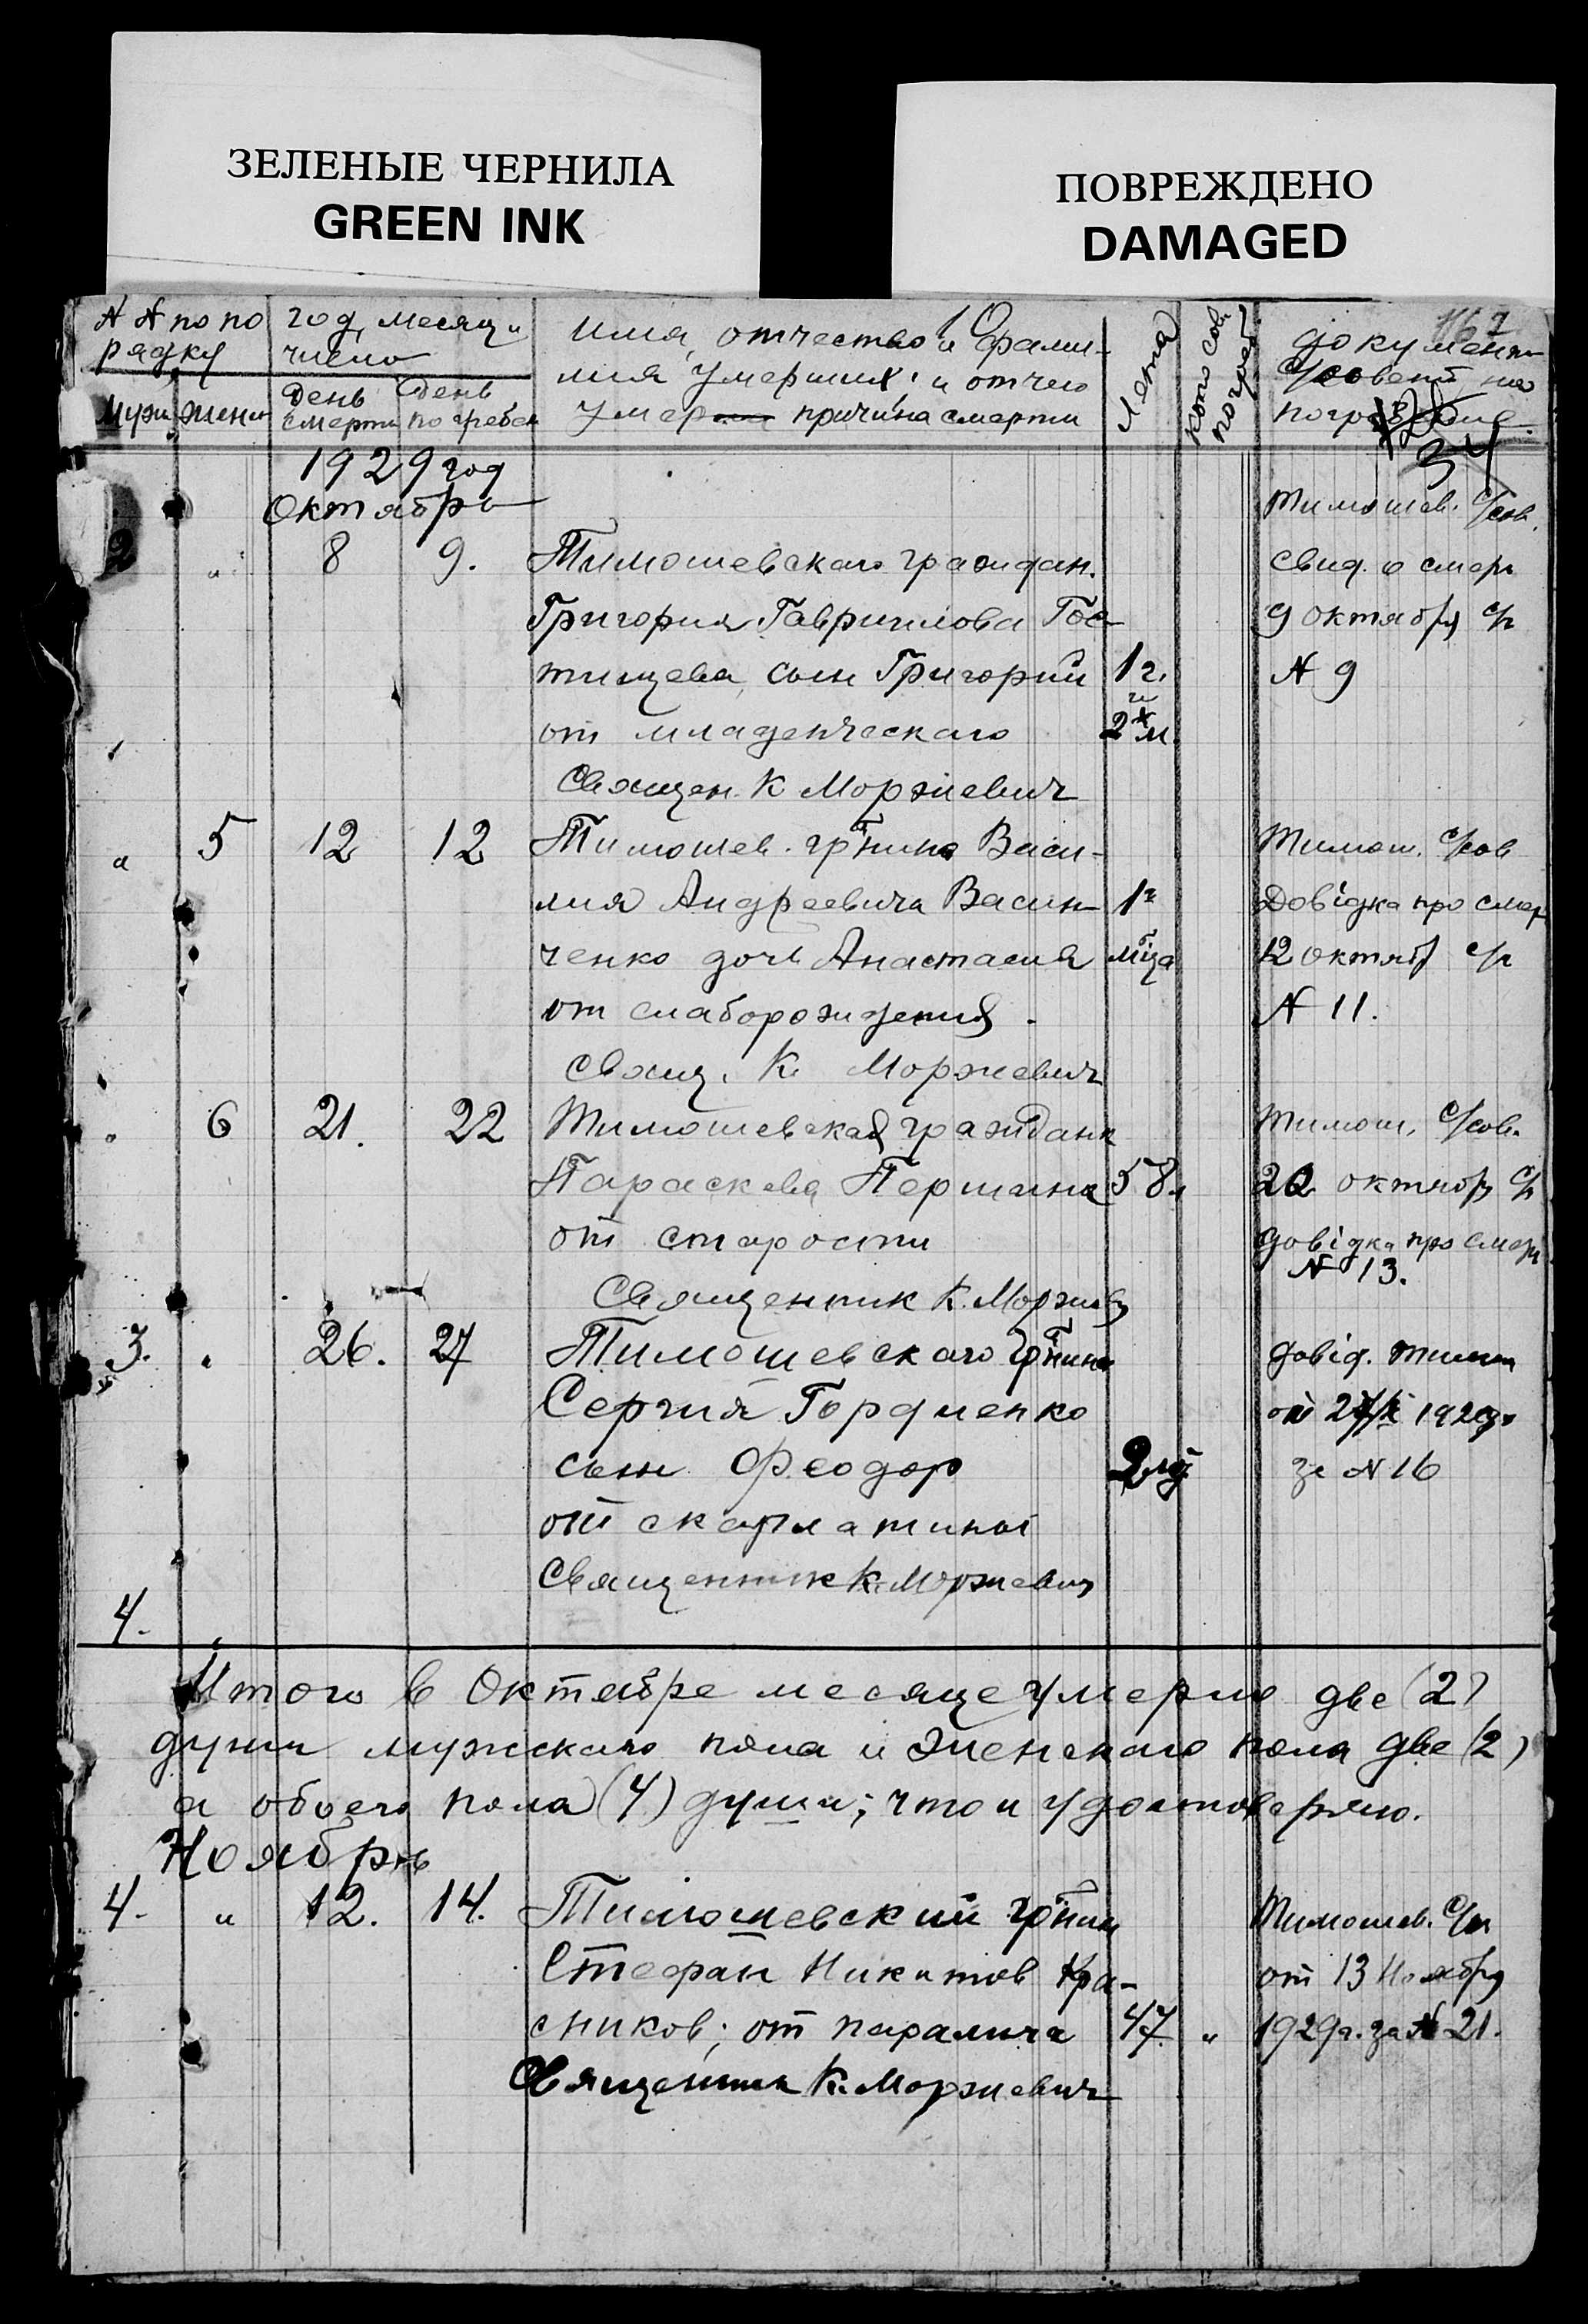 ЗЕЛЕНЫЕ ЧЕРНИЛА
GREEN INK
ПОВРЕЖДЕНО
DAMAGED
№ № по по
рядку
Мужи
Женс
год, месяц и
число
День
смерти
День
погребен
имя, отчество и фами-
лия умерших и отчего
умер причина смерти
Лета
Кто сов.
погреб.
документ
С/совета на
погребение
34
1929 год
Октябрь
2 " 8 9. Тимошевского граждан.
Григория Гавриилова Гос-
тищева, сын Григорий 1 г.
и
от младенческаго 2х м.
Священ. К Моржевич
Тимошев. С/сов.
свид. о смер
9 октября с/г
№ 9
" 5 12 12 Тимошев. гр-нина Васи-
лия Андреевича Васин- 1го
ченко дочь Анастасия м-ца
от слаборождения.
свящ. К. Моржевич
Тимош. С/сов
Довідка про смер
12 октяб с/г
№ 11.
" 6 21. 22 Тимошевская граждан
Параскева Першина 58 л
от старости
Священник К. Моржев
Тимош. С/сов.
22 октябр с/г
довідка про смер
№ 13.
3. " 26. 27 Тимошевского гр-нина
Сергия Гордиенко
сын Феодор 2
от скарлатины
Священник К. Моржевич
довід. Тимош
от 27/X 1929 г.
за № 16
4.
Итого в Октябре месяце умерло две (2)
души мужского пола и женского пола две (2)
а обоего пола (4) души; что и удостоверяю.
Ноябрь
4. " 12. 14. Тимошевский гр-нин
Стефан Никитов Кра-
сников; от паралича 47. "
Священник К. Моржевич
Тимошев. С/
от 13 Ноября
1929 г. за № 21.